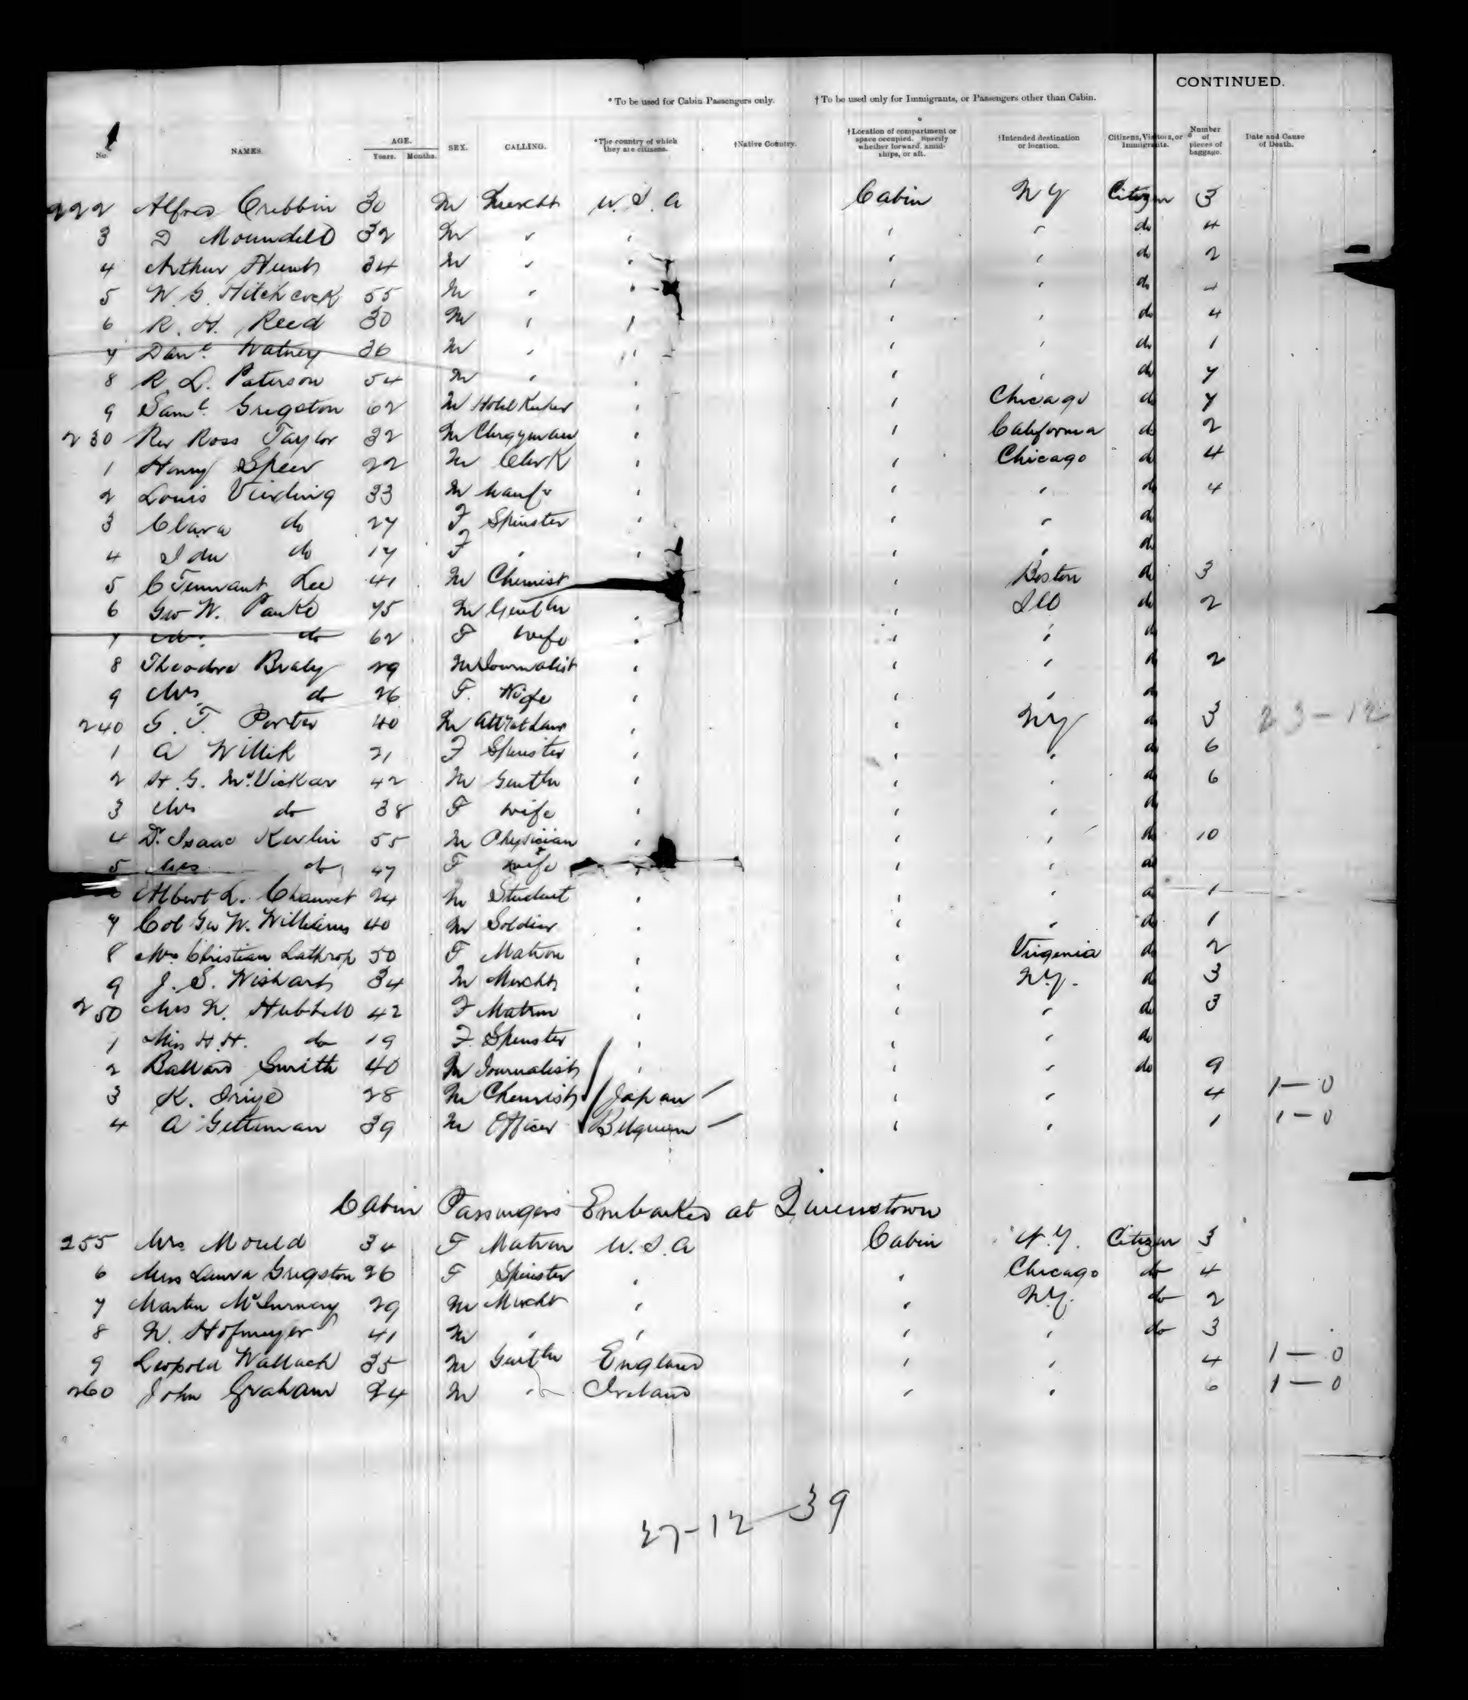 CONTINUED.
* To be used for Cabin Passengers only. † To be used only for Immigrants, or Passengers other than Cabin.
No. NAMES. AGE. Years. Months. SEX. CALLING. *The country of which they are citizens. †Native Country. †Location of compartment or space occupied. Specify whether forward, amidships, or aft. †Intended destination or location. Citizens, Visitors, or Immigrants. Number of pieces of baggage. Date and Cause of Death.
222 Alfred Cribbin 30 M Mercht U.S.A Cabin N Y Citizen 3
3 D 32 M " " " " do 4
4 Arthur 34 M " " " " do 2
5 W. G. Hitchcock 55 M " " " " do
6 R. H. Reed 30 M " " " " do 4
7 Danl. Watney 36 M " " " " do 1
8 R. L. Paterson 54 M " " " " do 7
9 Saml. Gregston 62 M Hotel Keeper " " Chicago do 7
230 Rev Ross Taylor 32 M Clergyman " " California do 2
1 Henry Speer 22 M Clerk " " Chicago do 4
2 Louis 33 M Manufr " " " do 4
3 Clara do 27 F Spinster " " " do
4 Ida do 17 F " " " " do
5 C Tennant Lee 41 M Chemist " " Boston do 3
6 Geo W. 75 M Gentln " " Ill do 2
7 do 62 F wife " " " do
8 Theodore 29 M Journalist " " " do 2
9 Mrs do 26 F. Wife " " " do
240 G. T. Porter 40 M Att at Law " " NY do 3 23-12
1 A Willik 21 F Spinster " " " do 6
2 H. G. McVickar 42 M Gentln " " " do 6
3 Mrs do 38 F wife " " " do
4 Dr. Isaac Kerlin 55 M Physician " " " do 10
5 Mrs do 47 F wife " do
Albert L. Chauvet 24 M Student " " do 1
7 Col Geo W. Williams 40 M Soldier " " " do 1
8 Mrs Christian Lathrop 50 F Matron " " Virginia do 2
9 J. S. Wishart 34 M Mercht " " N.Y. do 3
250 Mrs N. Hubbell 42 F Matron " " " do 3
1 Miss H. H. do 19 F. Spinster " " " do
2 Ballard Smith 40 M Journalist " " " do 9
3 K. 28 M Chemist Japan " " 4 1-0
4 A 39 M Officer Belgium " " 1 1-0
Cabin Passengers Embarked at Queenstown
255 Mrs Mould 34 F Matron U.S.A Cabin N.Y. Citizen 3
6 Miss Laura Gregston 26 F Spinster " " Chicago do 4
7 Martin McInerney 29 M Mercht " " N.Y. do 2
8 N. Hofmeyer 41 M " " " " do 3
9 Leopold Wallach 35 M Gentln England " " 4 1-0
260 John Graham 24 M " Ireland " " 6 1-0
27-12-39